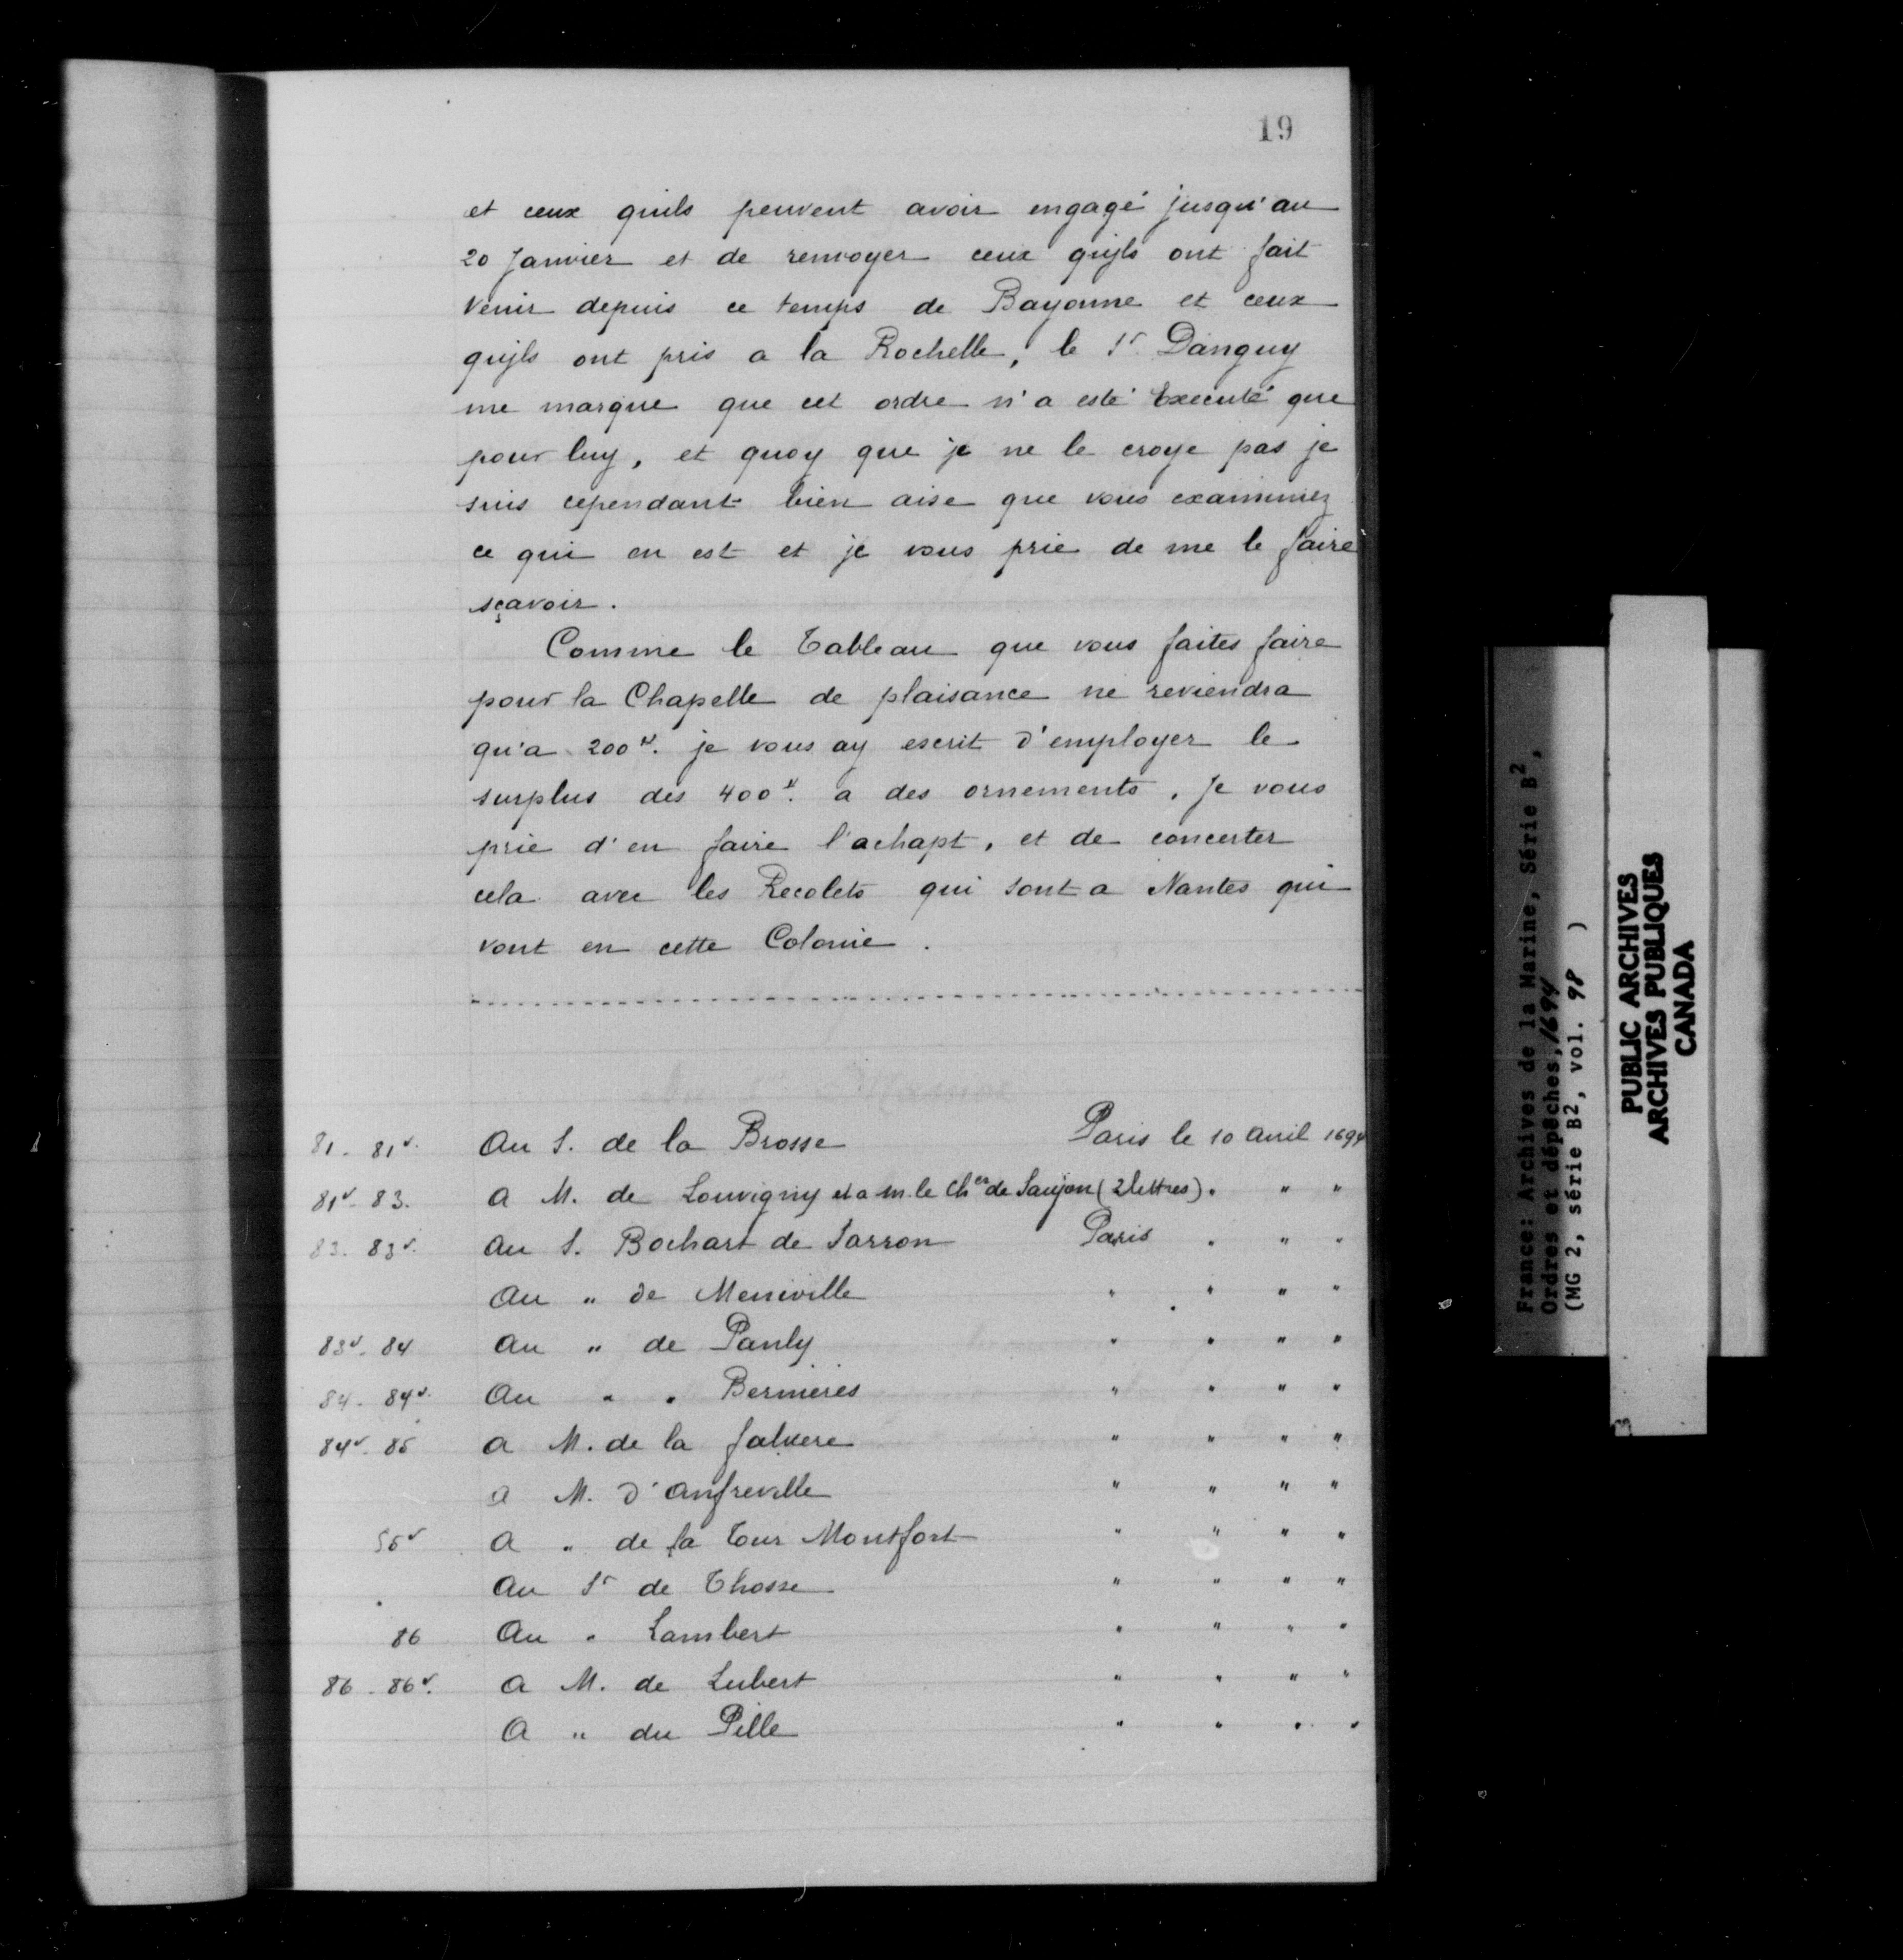 19
et ceux quils peuvent avoir engagé jusqu'au
20 Janvier et de renvoyer ceux qujls ont fait
venir depuis ce temps de Bayonne et ceux
qujls ont pris a la Rochelle, le Sr Danguy
me marque que cet ordre n'a esté Executé que
pour luy, et quoy que je ne le croye pas je
suis cependant bien aise que vous examiniez
ce qui en est et je vous prie de me le faire
sçavoir.
Comme le Tableau que vous faites faire
pour la Chapelle de plaisance ne reviendra
qu'a 200#. je vous ay escrit d'employer le
surplus des 400#. a des ornements, je vous
prie d'en faire l'achapt, et de concerter
cela avec les Recolets qui sont a Nantes qui
vont en cette Colonie.
81. 81v. Au S. de la Brosse Paris le 10 avril 1694
81v. 83. A M. de Louvigny et a m. le Cher de Saujon (2 lettres) " " "
83. 83v. Au S. Bochart de Sarron Paris " " "
Au " de Meniville " " " "
83v. 84 Au " de Panly " " " "
84. 84v. Au " " Bernieres " " " "
84v. 85 A M. de la " " " "
A M. d'Anfreville " " " "
A " de la Tour Montfort " " " "
Au Sr de Thosse " " " "
86 Au " Lambert " " " "
86. 86v. A M. de Lubert " " " "
A " du Pille " " " "
France: Archives de la Marine, Série B2,
Ordres et dépêches, 1694
(MG 2, série B2, vol. 98 )
PUBLIC ARCHIVES
ARCHIVES PUBLIQUES
CANADA
3